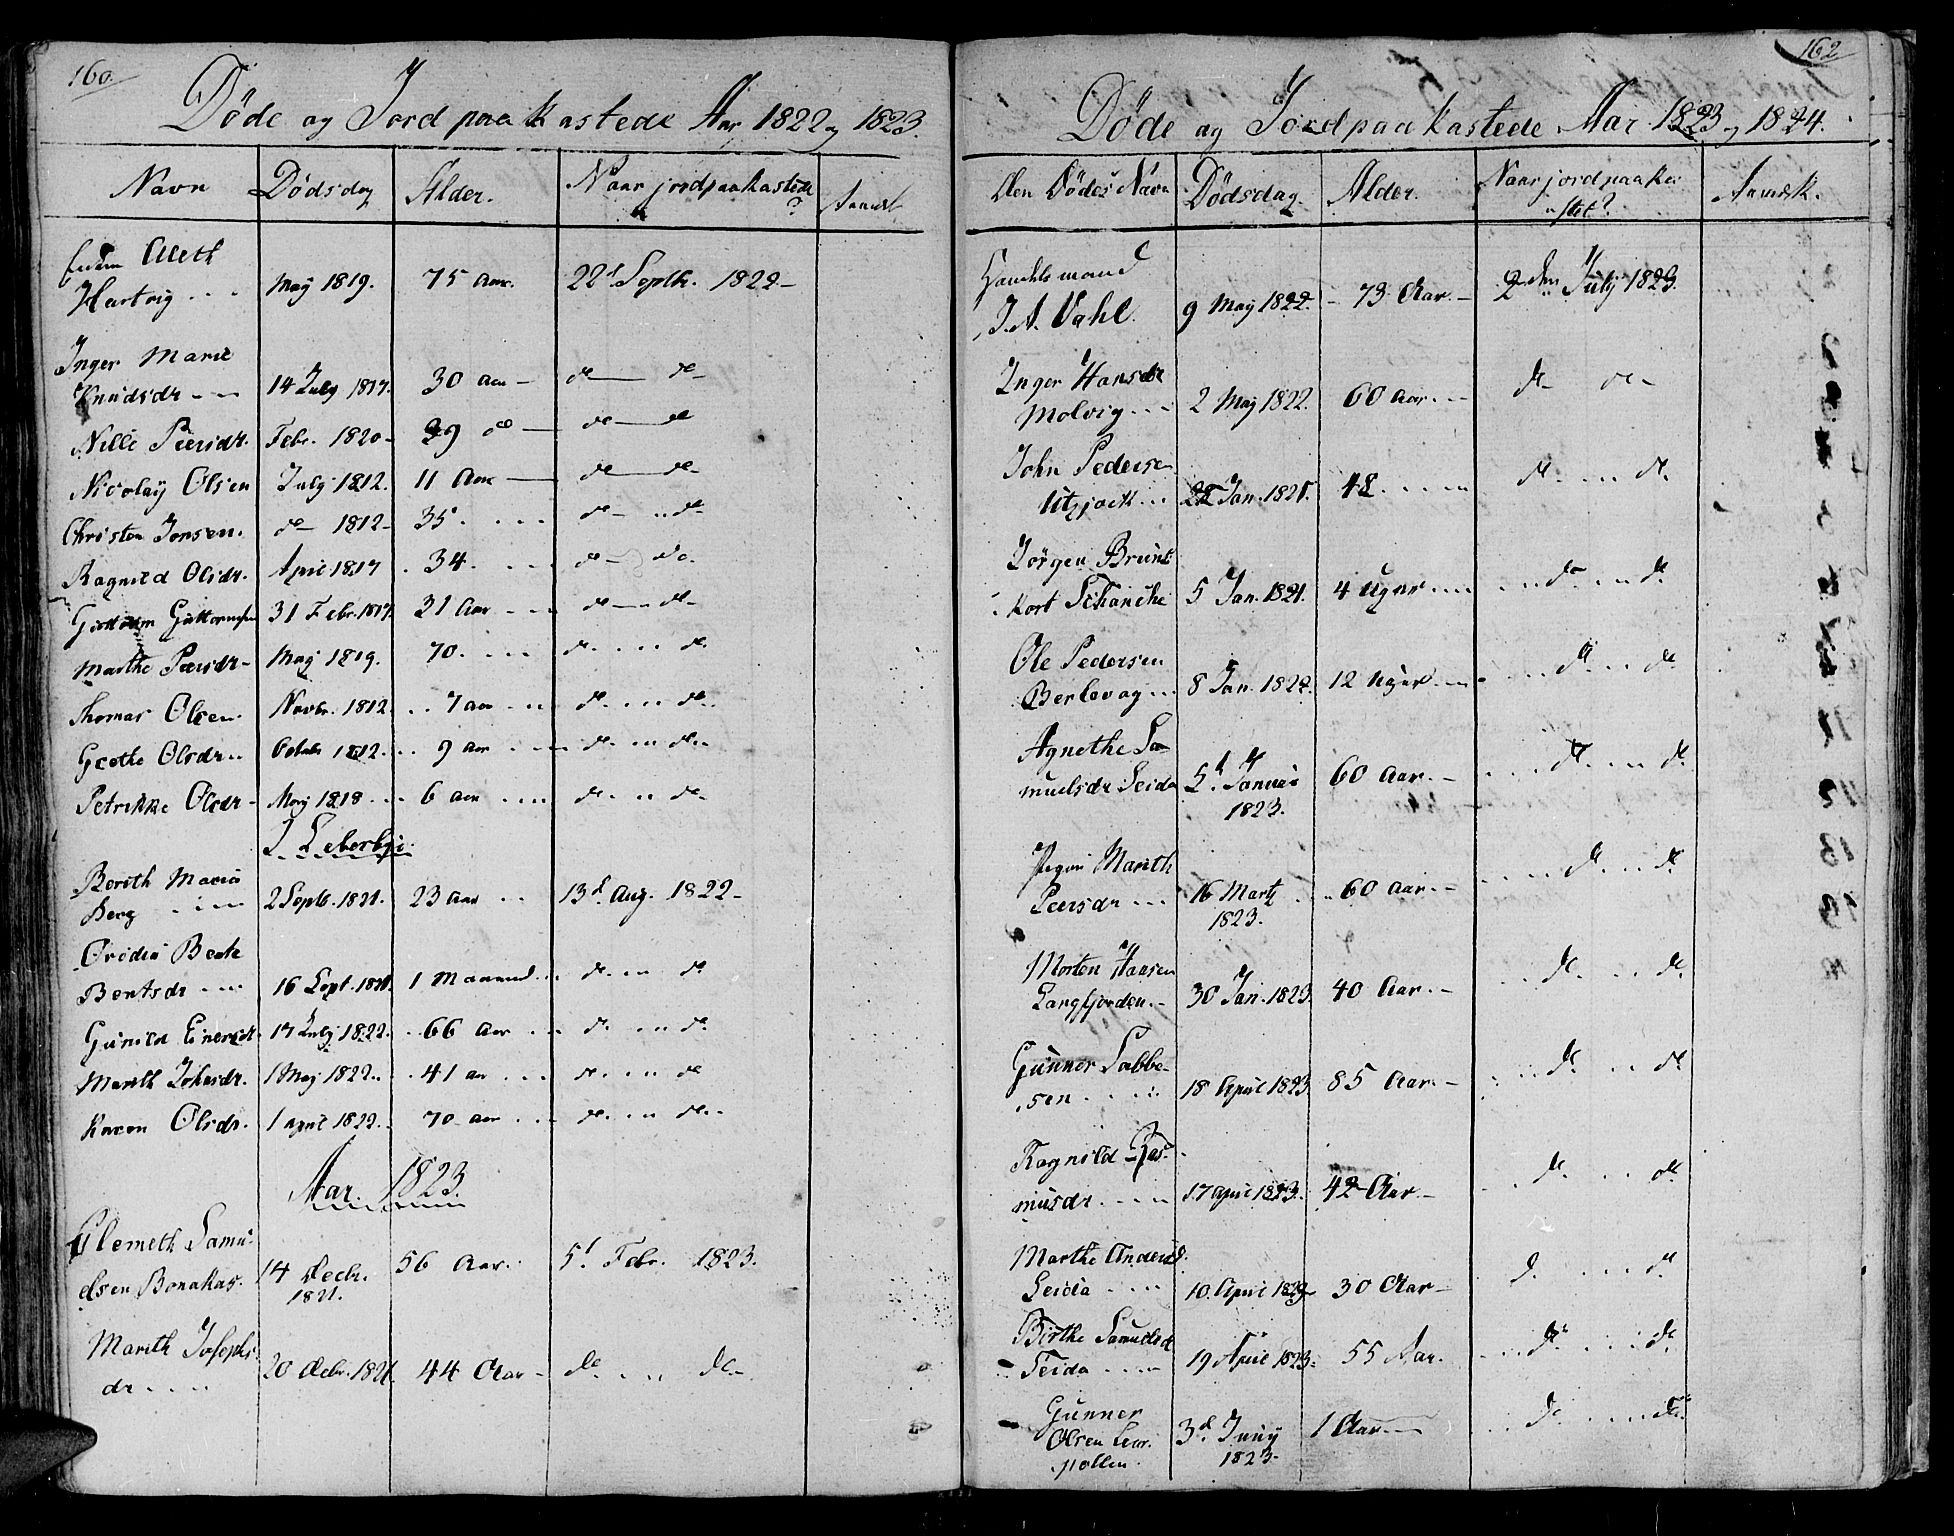 160.
Døde og Jord paakastede Aar 1822 og 1823.
Navn Dødsdag Alder. Naar jordpaakastede? Anmk
Aleth
Hartvig . . . May 1819. 75 Aar. 22d Septbr. 1822 –
Inger Marie
Knudsdr – – 14 July 1817. 30 Aar – do — do –
Nille Peersdr. Febr. 1820 – 39 do — do — do
Nicolaÿ Olsen July 1812. 11 Aar — do — do –
Christen Jonsen. do – 1812 – 35. . . . do – .. do –
Ragnild Olsdr. April 1817 . 34. . . . do – do.
Guttorm Guttormsen 31 Febr. 1817. 21 Aar . . . do — do –
Marthe Peersdr – May 1819. 70. . . . do. . . . do.
Thomas Olsen. Novbr. 1812. . . 7 aar . . . do. . . . do.
Grethe Olsdr . . Octobr 1812. . . 9 aar . . . do. . . do –
Petrikke Olsdr – May 1818 . . . 6 aar . . . do. . . do –
I Lebesbye.
Berith Maria
Berg . . . 2 Septb. 1821. 23 aar . . 13d. Aug. 1822 –
Beate
Bentsdr . . . 16 Sept. 1821. 1 Maaned . . . do. . . . do
Gunild Einersdr. 17 July 1822. . . 66 Aar . . . do. . . . do.
Marith Johnsdr. 1 May 1822. . . 41 aar . . . do. . . . do
Karen Olsdr. 1 april 1822. . . 70 aar . . . do. . . . do . .
Aar. 1823.
Clemeth Samu-
elsen Bonakas. 14 Decbr. 1821. 56 Aar . . 5t Febr. 1823.
Marith Josephs
dr . . . . 20 Decbr. 1821 44 Aar – do . . . . do –
162
Døde og Jordpaakastede Aar 1823 og 1824.
Den Dødes Navn Dødsdag. Alder. Naar jordpaaka-
stet? Anmk.
Handelsmand
J. A. Vahl. 9 May 1822. – 73 Aar. – 2den July 1823.
Inger Hansdr
Molvig . . . 2 May 1822. 60 Aar. . – do – do –
John Pedersen
. . . 22 Jan. 1821. 48. . . . do. . . . do.
Jørgen Brunk
Kort Schanche 5 Jan. 1821. 4 Uger . . . . . . do . . . do.
Ole Pedersen
Berlevag . . . 8 Jan. 1822. 12 Uger . . . . . . do . . . do.
Agnethe Sa-
muelsdr Seida 5t. Januar 60 Aar. – . . . do. . . . do.
1823.
Marith
Peersdr . . . 16 Marti . . . 60 Aar. – . . . do. . . do.
1823.
Morten Hansen
Langfjorden . – 30 Jan. 1823. 40 Aar. – . . do. . . . do.
Gunner Sabbe-
sen . . . . 18 April 1823. 85 Aar. – . . . do. . . do
Ragnild Ras-
musdr . . . . 17 April 1823. 42 Aar – . . do. . . . do
Marthe Andersd.
Seida . . . . 10. April 1823 – 30 Aar – . do. . . . do.
Birthe Samuelsdr
Seida . . . . 19 April 1823. 55 Aar. . . . do. . . . do.
Gunner
Olsen Leir-
pollen. 3d. Juny 1 Aar . . – . . do. . . . do.
1823.